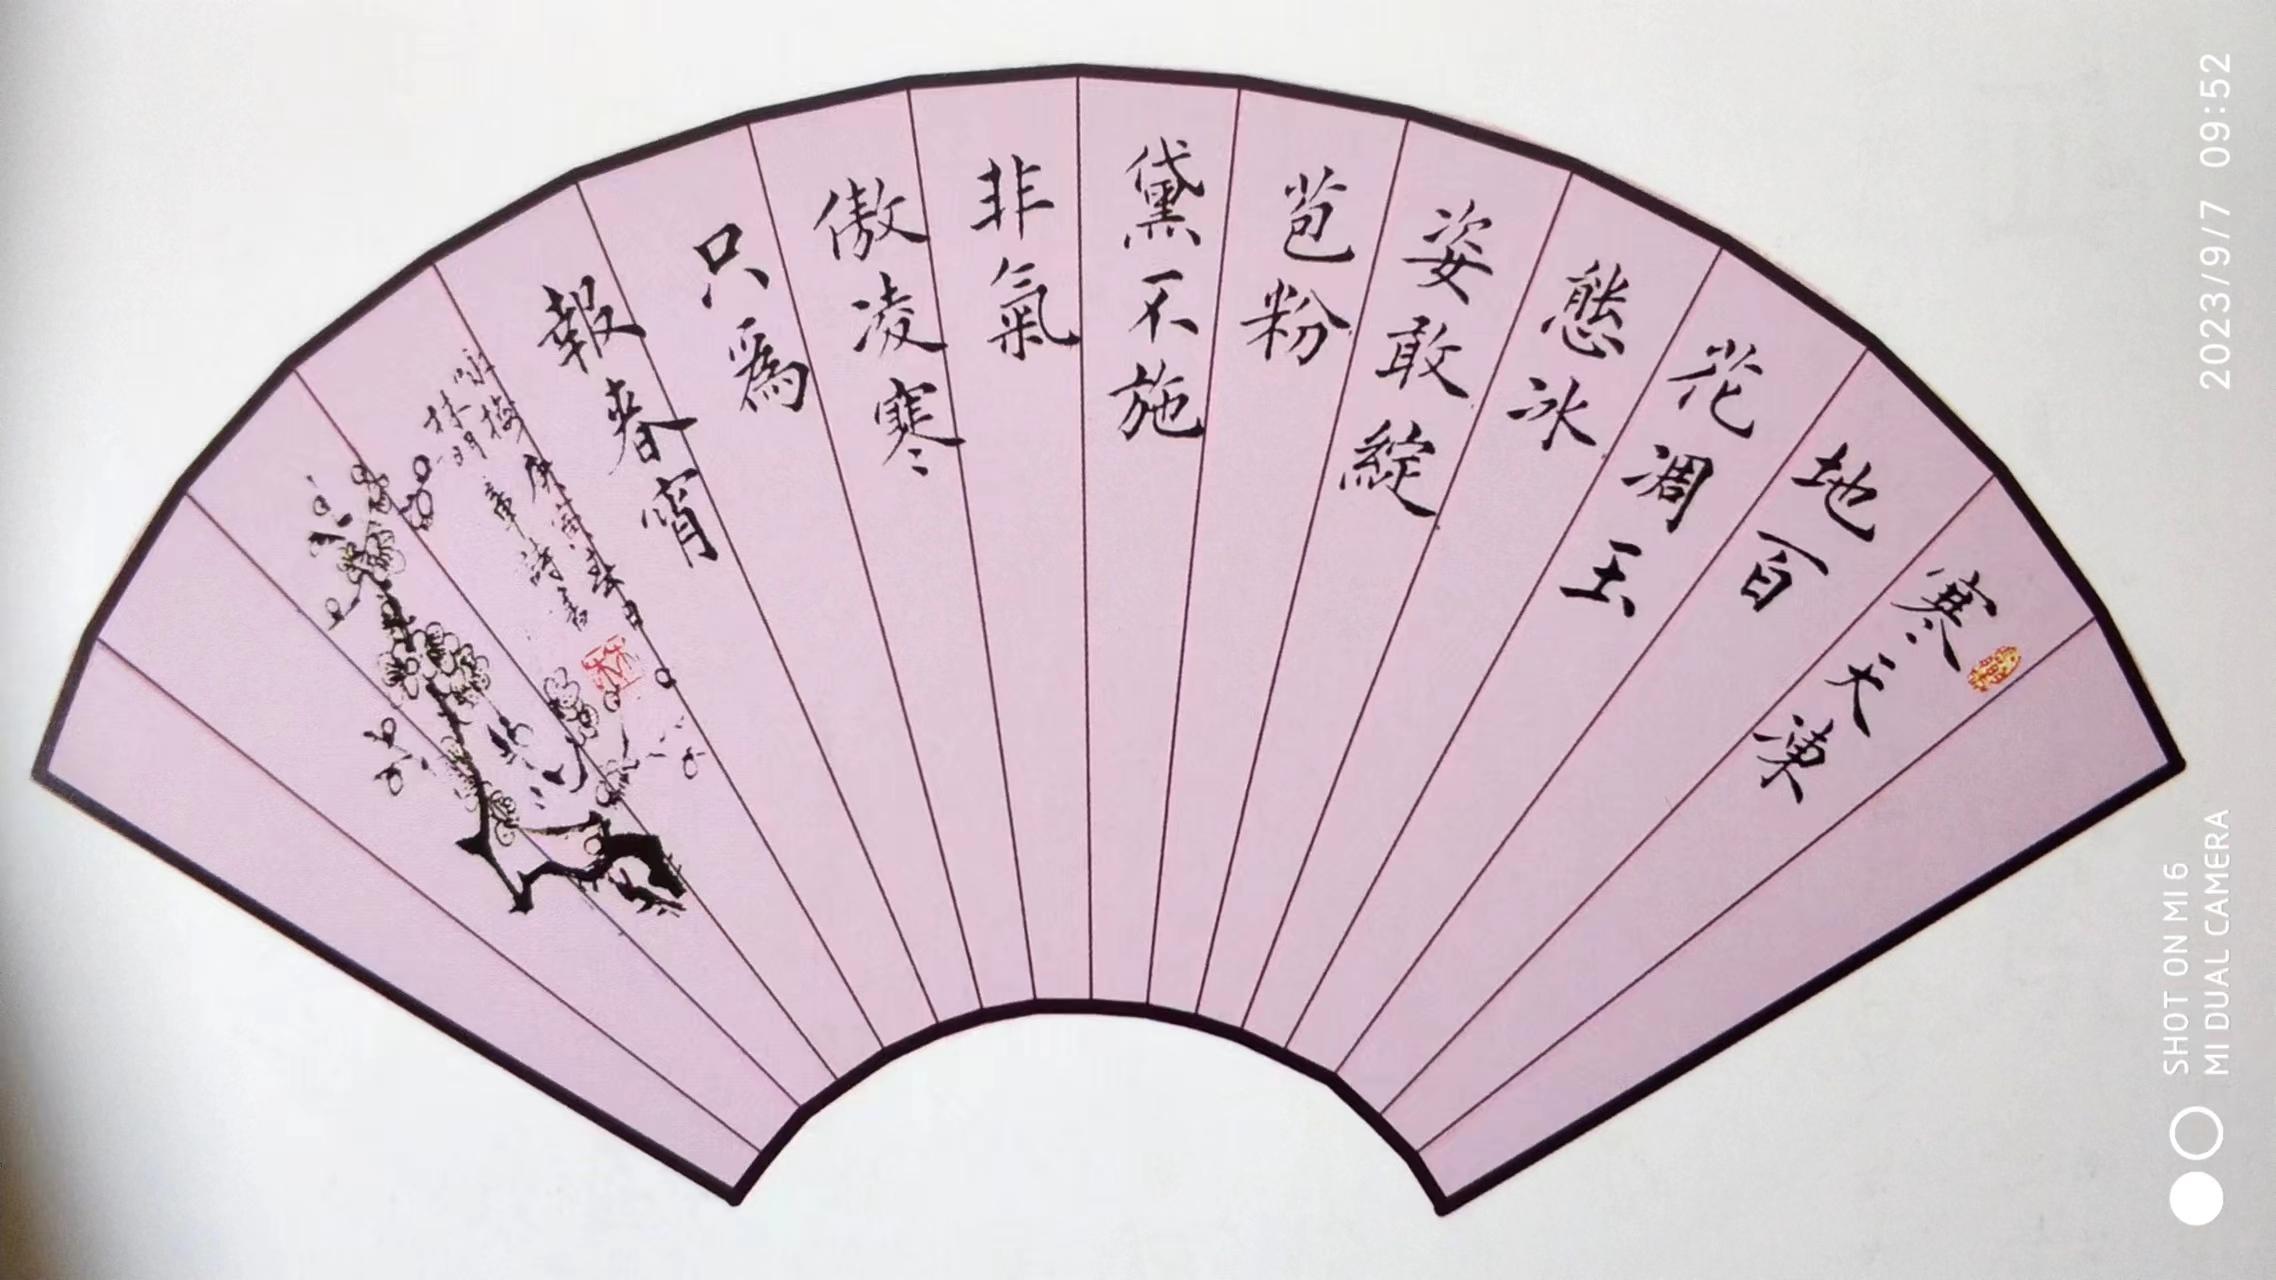 寒天凍
地百
花凋玉
態冰
姿敢綻
苞粉
黛不施
非氣
傲凌寒
只爲
報春宵
詠梅 庚寅春日
林明章詩書
2023/9/7 09:52
SHOT ON MI 6
MI DUAL CAMERA